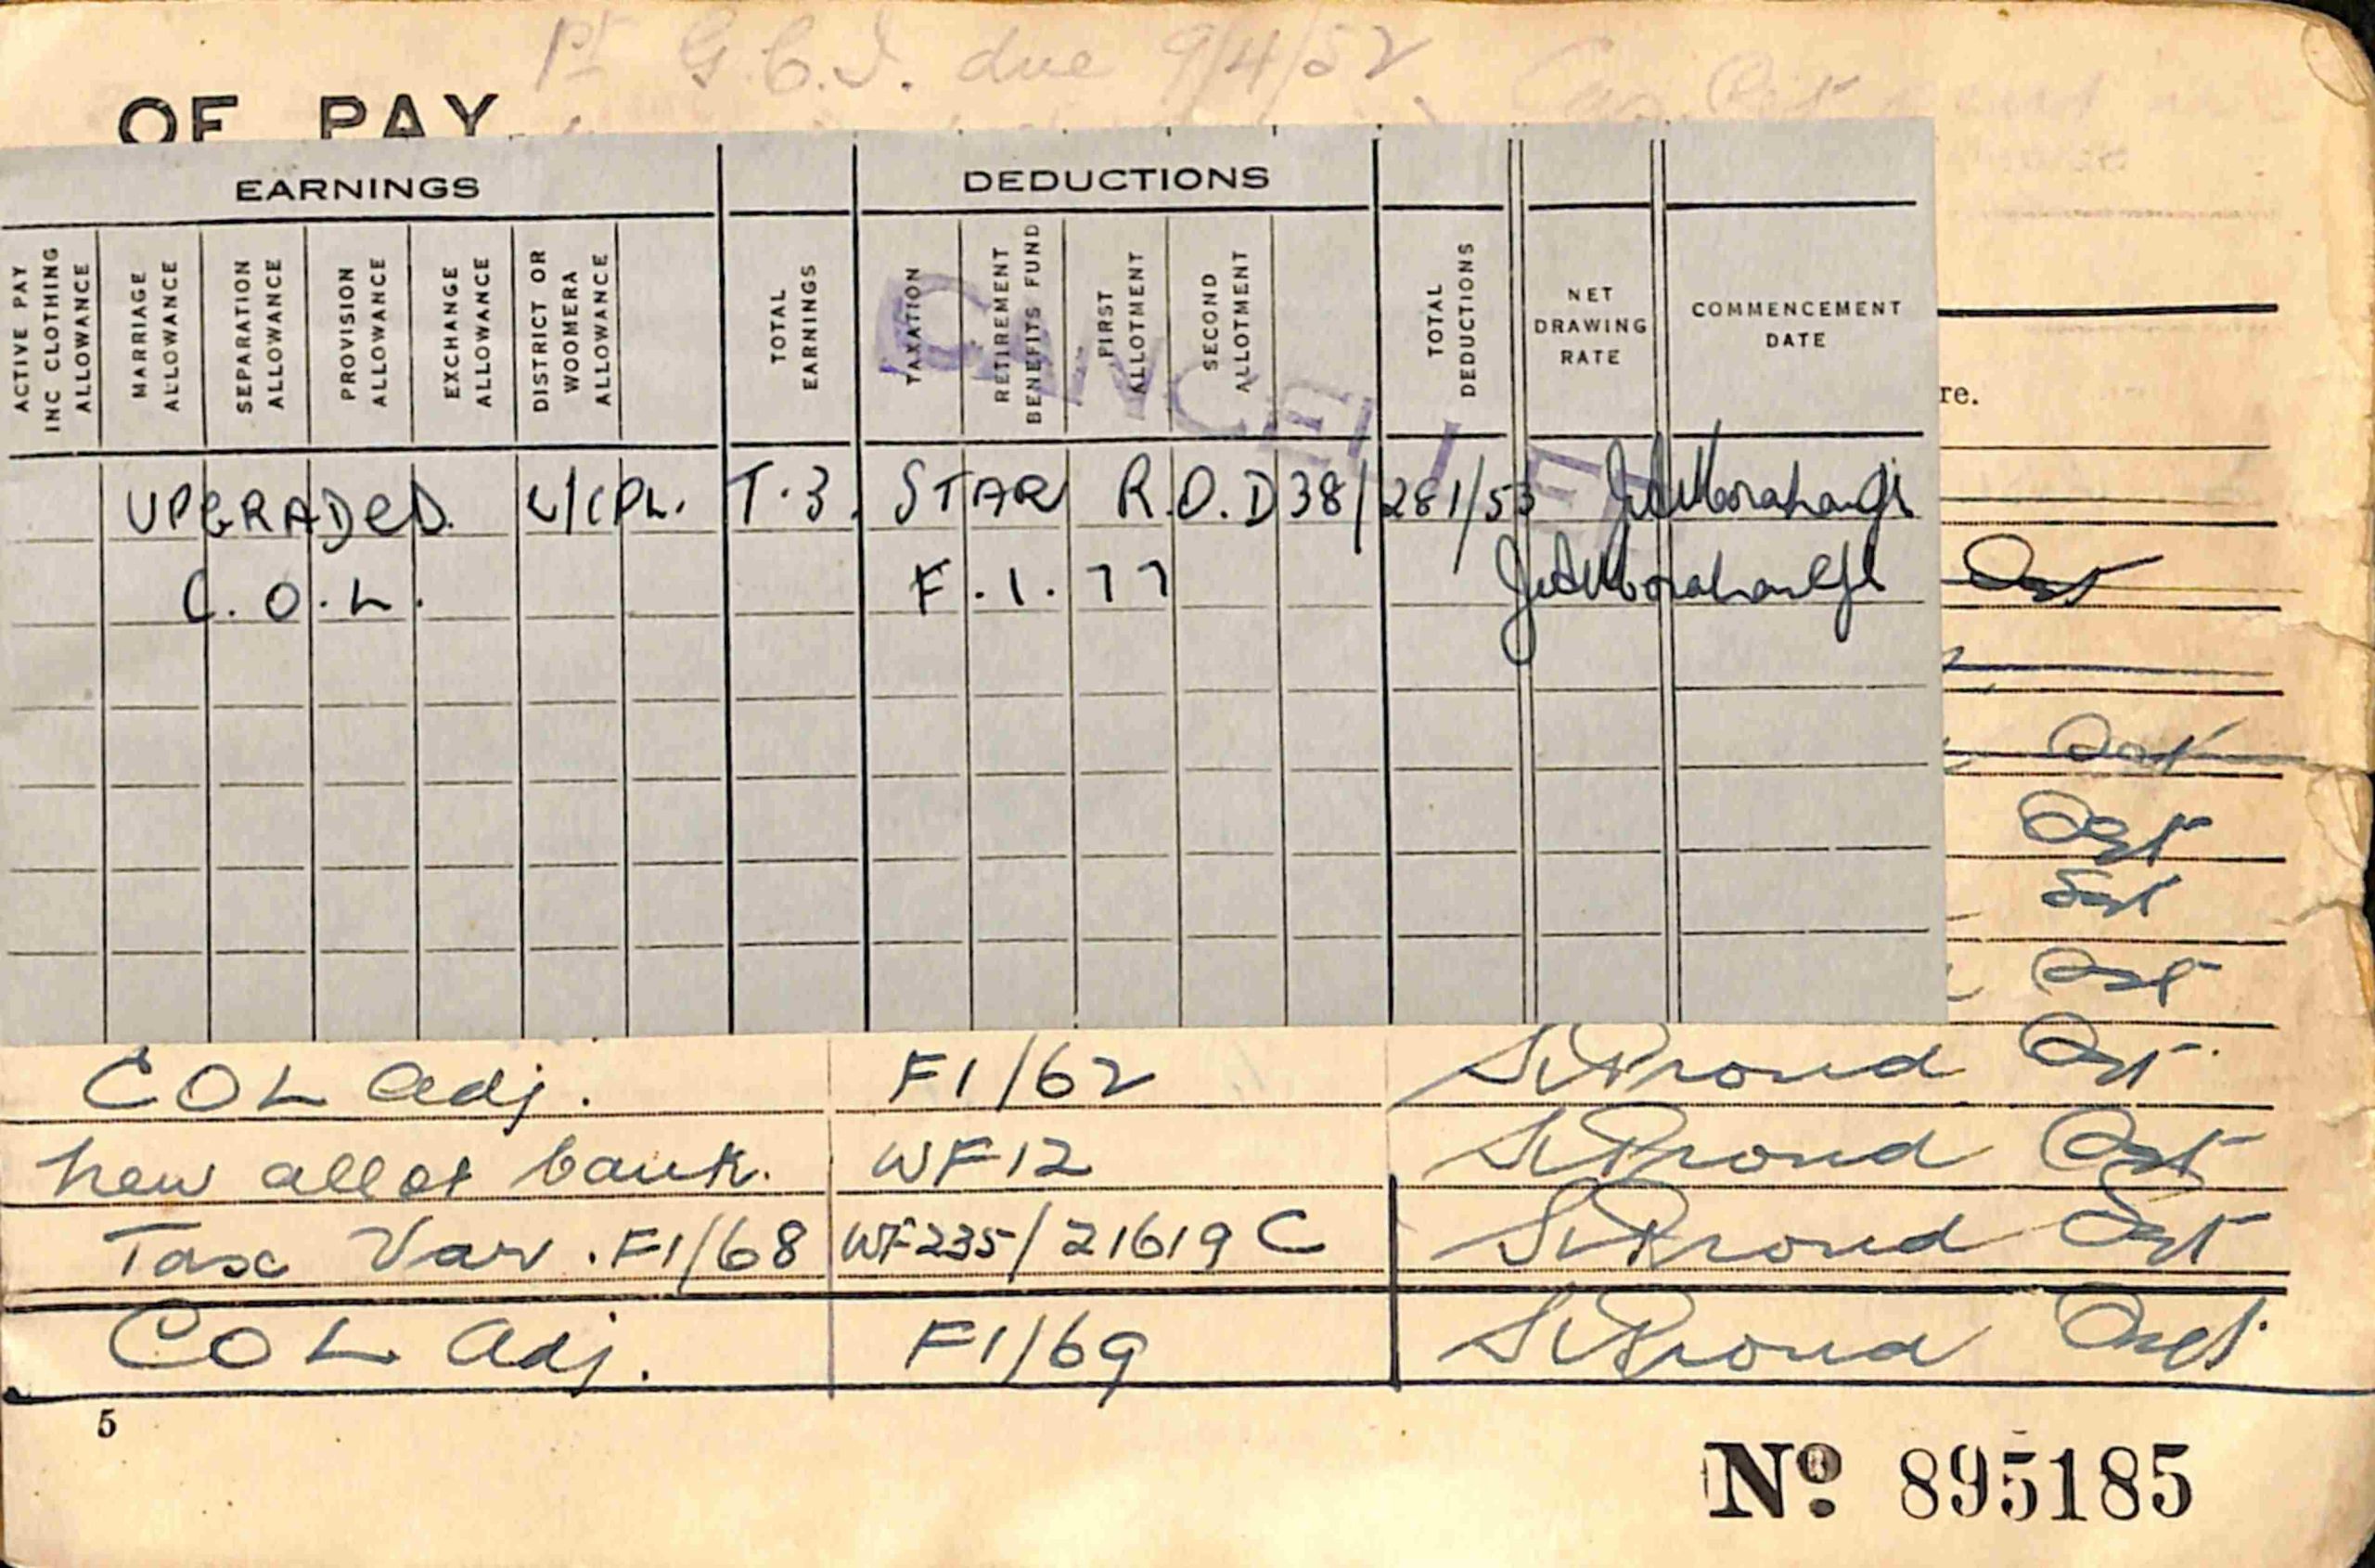 1st G.C.I. due 9/4/52
OF PAY
EARNINGS
DEDUCTIONS
ACTIVE PAY INC CLOTHING ALLOWANCE
MARRIAGE ALLOWANCE
SEPARATION ALLOWANCE
PROVISION ALLOWANCE
EXCHANGE ALLOWANCE
DISTRICT OR WOOMERA ALLOWANCE
TOTAL EARNINGS
TAXATION
RETIREMENT BENEFITS FUND
FIRST ALLOTMENT
SECOND ALLOTMENT
TOTAL DEDUCTIONS
NET DRAWING RATE
COMMENCEMENT DATE
CANCELLED
re.
UPGRADED. L/CPL. T.3. STAR R.O.D 38/281/53
C.O.L. F.1.77
COL adj. F1/62 Proud
new allot bank. WF12 Proud
Tax Var. F1/68 WF235/21619 C Proud
COL adj. F1/69 Proud
5
No. 895185